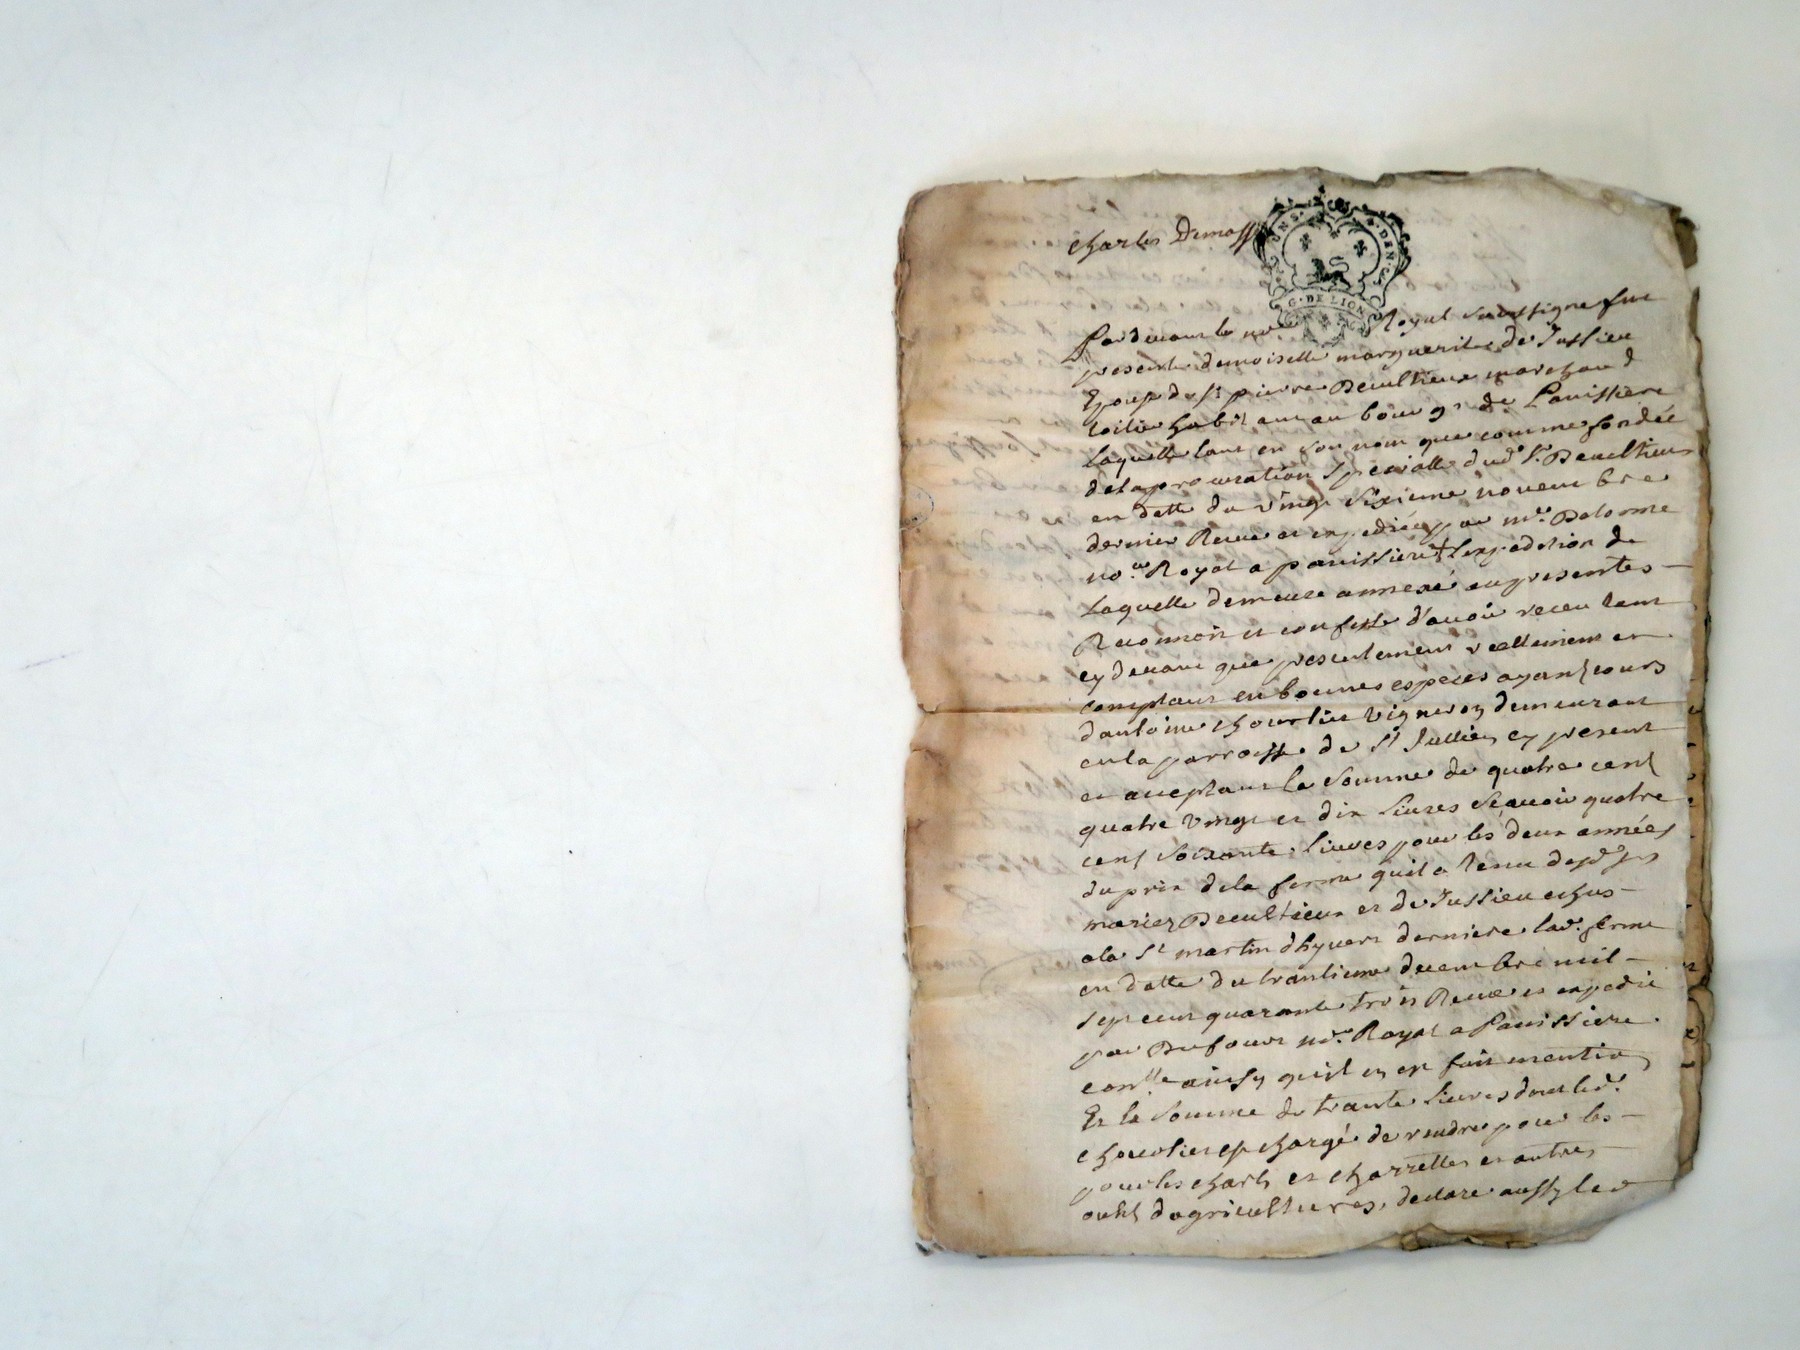 Charles Demass
UN S. DEN. 6
G. DE LION
Pardevant le no.re Royal soussigné fut
presente demoiselle marguerite de Jussieu
Epouse de Sr pierre Decultieux marchand
toilier habitant au bourg de Panissiere
laquelle tant en son nom que comme fondée
de la procuration specialle dud. Sr. Decultieux
en datte du vingt sixieme novembre
dernier Receue et expediée par me. Delorme
no.re Royal a panissiere l'expedition de
laquelle demeure annexé au presentes
Reconnoit et confesse d'avoir receu tant
cy devant que presentement reellement et
comptant en bonnes especes ayant cours
d'antoine chourlier vigneron demeurant
en la parroisse de St Jullien cy present
et acceptant la somme de quatre cent
quatre vingt et dix livres sçavoir quatre
cent soixante livres pour les deux années
du prix de la ferme quil a tenu desd.
mariez Decultieux et de Jussieu echus
a la St martin d'hyvert derniere lad. ferme
en datte du trantieme decembre mil
sept cent quarante trois Receue et expedié
par Dufour no.re Royal a Panissiere
con.lle ainsy quil en est fait mention
Et la somme de trante livres dont led.
chourlier est chargé de rendre pour les
pour les charts et charrettes et autres
outils d'agricultures, declare aussy lad